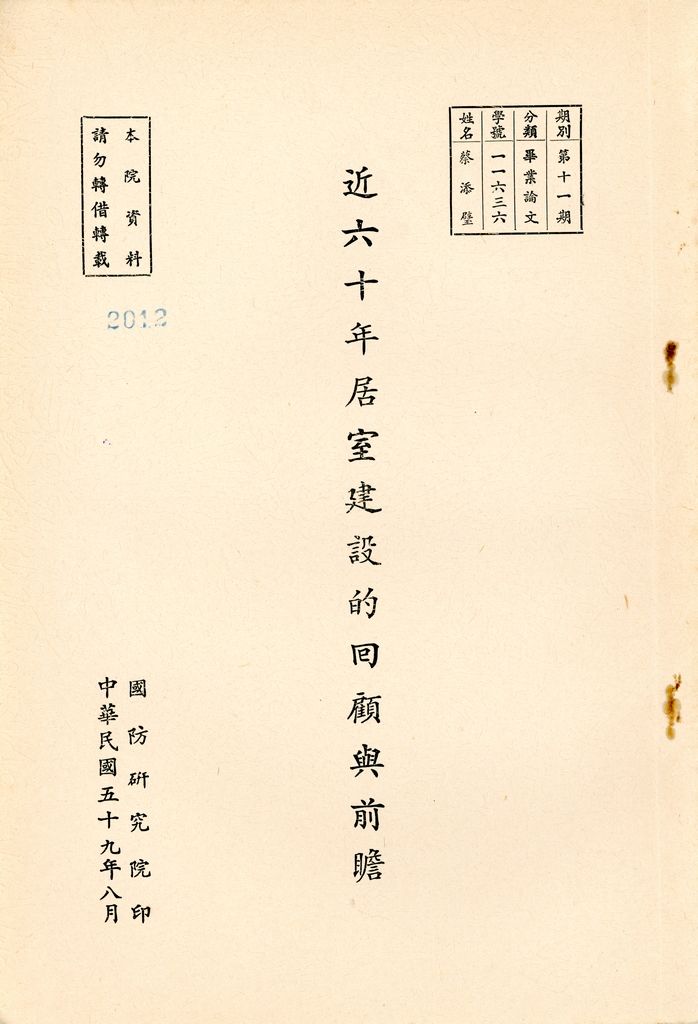 期別 第十一期
分類 畢業論文
學號 一一六三六
姓名 蔡添璧
近六十年居室建設的回顧與前瞻
本院資料
請勿轉借轉載
2012
國防研究院印
中華民國五十九年八月